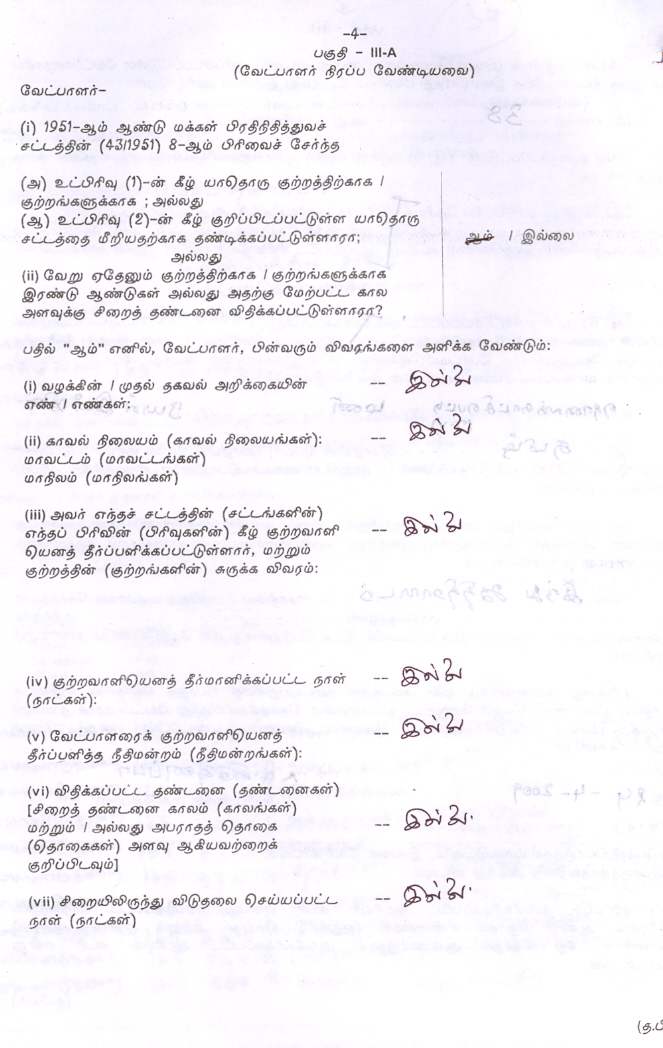 –4–
பகுதி – III-A
(வேட்பாளர் நிரப்ப வேண்டியவை)
வேட்பாளர்–
(i) 1951–ஆம் ஆண்டு மக்கள் பிரதிநிதித்துவச்
சட்டத்தின் (43/1951) 8–ஆம் பிரிவைச் சேர்ந்த
(அ) உட்பிரிவு (1)–ன் கீழ் யாதொரு குற்றத்திற்காக /
குற்றங்களுக்காக ; அல்லது
(ஆ) உட்பிரிவு (2)–ன் கீழ் குறிப்பிடப்பட்டுள்ள யாதொரு
சட்டத்தை மீறியதற்காக தண்டிக்கப்பட்டுள்ளாரா; ஆம் / இல்லை
அல்லது
(ii) வேறு ஏதேனும் குற்றத்திற்காக / குற்றங்களுக்காக
இரண்டு ஆண்டுகள் அல்லது அதற்கு மேற்பட்ட கால
அளவுக்கு சிறைத் தண்டனை விதிக்கப்பட்டுள்ளாரா?
பதில் "ஆம்" எனில், வேட்பாளர், பின்வரும் விவரங்களை அளிக்க வேண்டும்:
(i) வழக்கின் / முதல் தகவல் அறிக்கையின் -- இல்லை
எண் / எண்கள்:
(ii) காவல் நிலையம் (காவல் நிலையங்கள்): -- இல்லை
மாவட்டம் (மாவட்டங்கள்)
மாநிலம் (மாநிலங்கள்)
(iii) அவர் எந்தச் சட்டத்தின் (சட்டங்களின்)
எந்தப் பிரிவின் (பிரிவுகளின்) கீழ் குற்றவாளி -- இல்லை
யெனத் தீர்ப்பளிக்கப்பட்டுள்ளார், மற்றும்
குற்றத்தின் (குற்றங்களின்) சுருக்க விவரம்:
(iv) குற்றவாளியெனத் தீர்மானிக்கப்பட்ட நாள் -- இல்லை
(நாட்கள்):
(v) வேட்பாளரைக் குற்றவாளியெனத் -- இல்லை
தீர்ப்பளித்த நீதிமன்றம் (நீதிமன்றங்கள்):
(vi) விதிக்கப்பட்ட தண்டனை (தண்டனைகள்)
[சிறைத் தண்டனை காலம் (காலங்கள்)
மற்றும் / அல்லது அபராதத் தொகை -- இல்லை.
(தொகைகள்) அளவு ஆகியவற்றைக்
குறிப்பிடவும்]
(vii) சிறையிலிருந்து விடுதலை செய்யப்பட்ட -- இல்லை.
நாள் (நாட்கள்)